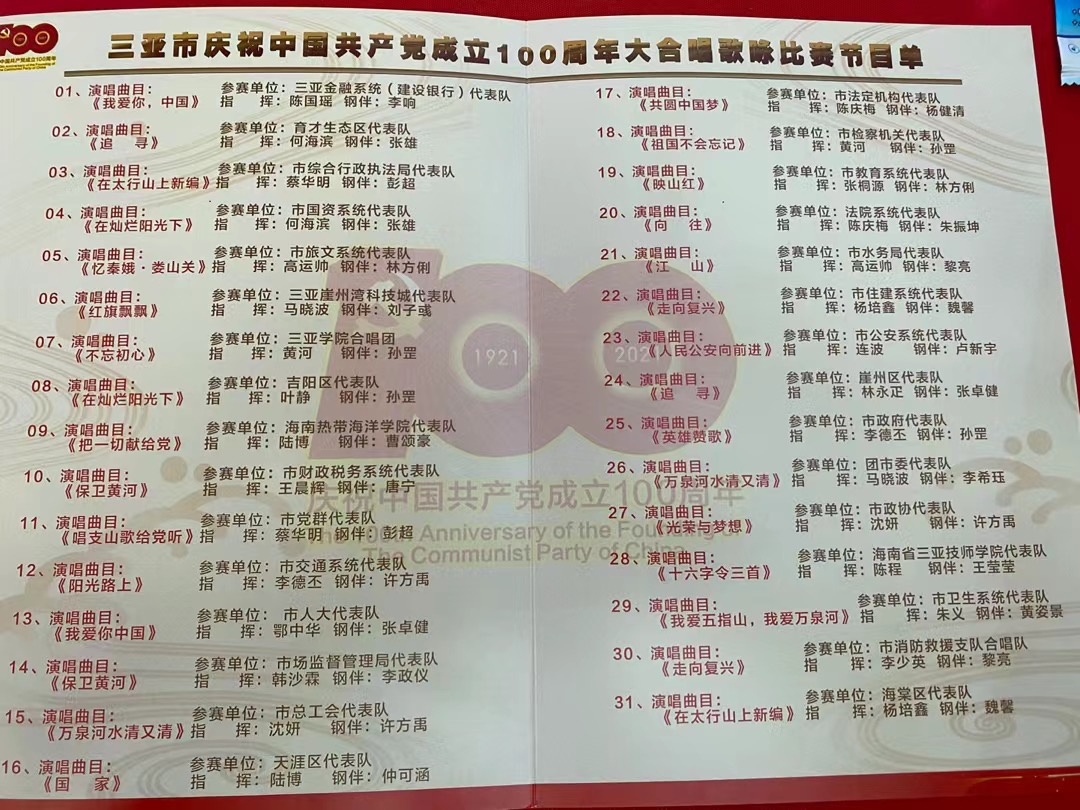 100
中国共产党成立100周年
三亚市庆祝中国共产党成立100周年大合唱歌咏比赛节目单
01、演唱曲目： 参赛单位：三亚金融系统（建设银行）代表队
《我爱你，中国》 指 挥：陈国瑶 钢伴：李响
02、演唱曲目： 参赛单位：育才生态区代表队
《追 寻》 指 挥：何海滨 钢伴：张雄
03、演唱曲目： 参赛单位：市综合行政执法局代表队
《在太行山上新编》 指 挥：蔡华明 钢伴：彭超
04、演唱曲目： 参赛单位：市国资系统代表队
《在灿烂阳光下》 指 挥：何海滨 钢伴：张雄
05、演唱曲目： 参赛单位：市旅文系统代表队
《忆秦娥·娄山关》 指 挥：高运帅 钢伴：林方俐
06、演唱曲目： 参赛单位：三亚崖州湾科技城代表队
《红旗飘飘》 指 挥：马晓波 钢伴：刘子彧
07、演唱曲目： 参赛单位：三亚学院合唱团
《不忘初心》 指 挥：黄河 钢伴：孙罡
08、演唱曲目： 参赛单位：吉阳区代表队
《在灿烂阳光下》 指 挥：叶静 钢伴：孙罡
09、演唱曲目： 参赛单位：海南热带海洋学院代表队
《把一切献给党》 指 挥：陆博 钢伴：曹颂豪
10、演唱曲目： 参赛单位：市财政税务系统代表队
《保卫黄河》 指 挥：王晨辉 钢伴：唐宁
11、演唱曲目： 参赛单位：市党群代表队
《唱支山歌给党听》 指 挥：蔡华明 钢伴：彭超
12、演唱曲目： 参赛单位：市交通系统代表队
《阳光路上》 指 挥：李德丕 钢伴：许方禹
13、演唱曲目： 参赛单位：市人大代表队
《我爱你中国》 指 挥：鄂中华 钢伴：张卓健
14、演唱曲目： 参赛单位：市场监督管理局代表队
《保卫黄河》 指 挥：韩沙霖 钢伴：李政仪
15、演唱曲目： 参赛单位：市总工会代表队
《万泉河水清又清》 指 挥：沈妍 钢伴：许方禹
16、演唱曲目： 参赛单位：天涯区代表队
《国 家》 指 挥：陆博 钢伴：仲可涵
17、演唱曲目： 参赛单位：市法定机构代表队
《共圆中国梦》 指 挥：陈庆梅 钢伴：杨健清
18、演唱曲目： 参赛单位：市检察机关代表队
《祖国不会忘记》 指 挥：黄河 钢伴：孙罡
19、演唱曲目： 参赛单位：市教育系统代表队
《映山红》 指 挥：张桐源 钢伴：林方俐
20、演唱曲目： 参赛单位：法院系统代表队
《向 往》 指 挥：陈庆梅 钢伴：朱振坤
21、演唱曲目： 参赛单位：市水务局代表队
《江 山》 指 挥：高运帅 钢伴：黎亮
22、演唱曲目： 参赛单位：市住建系统代表队
《走向复兴》 指 挥：杨培鑫 钢伴：魏馨
23、演唱曲目： 参赛单位：市公安系统代表队
《人民公安向前进》 指 挥：连波 钢伴：卢新宇
24、演唱曲目： 参赛单位：崖州区代表队
《追 寻》 指 挥：林永疋 钢伴：张卓健
25、演唱曲目： 参赛单位：市政府代表队
《英雄赞歌》 指 挥：李德丕 钢伴：孙罡
26、演唱曲目： 参赛单位：团市委代表队
《万泉河水清又清》 指 挥：马晓波 钢伴：李希珏
27、演唱曲目： 参赛单位：市政协代表队
《光荣与梦想》 指 挥：沈妍 钢伴：许方禹
28、演唱曲目： 参赛单位：海南省三亚技师学院代表队
《十六字令三首》 指 挥：陈程 钢伴：王莹莹
29、演唱曲目： 参赛单位：市卫生系统代表队
《我爱五指山，我爱万泉河》 指 挥：朱义 钢伴：黄姿景
30、演唱曲目： 参赛单位：市消防救援支队合唱队
《走向复兴》 指 挥：李少英 钢伴：黎亮
31、演唱曲目： 参赛单位：海棠区代表队
《在太行山上新编》 指 挥：杨培鑫 钢伴：魏馨
100
1921 202
庆祝中国共产党成立100周年
The 100th Anniversary of the Founding of
The Communist Party of China